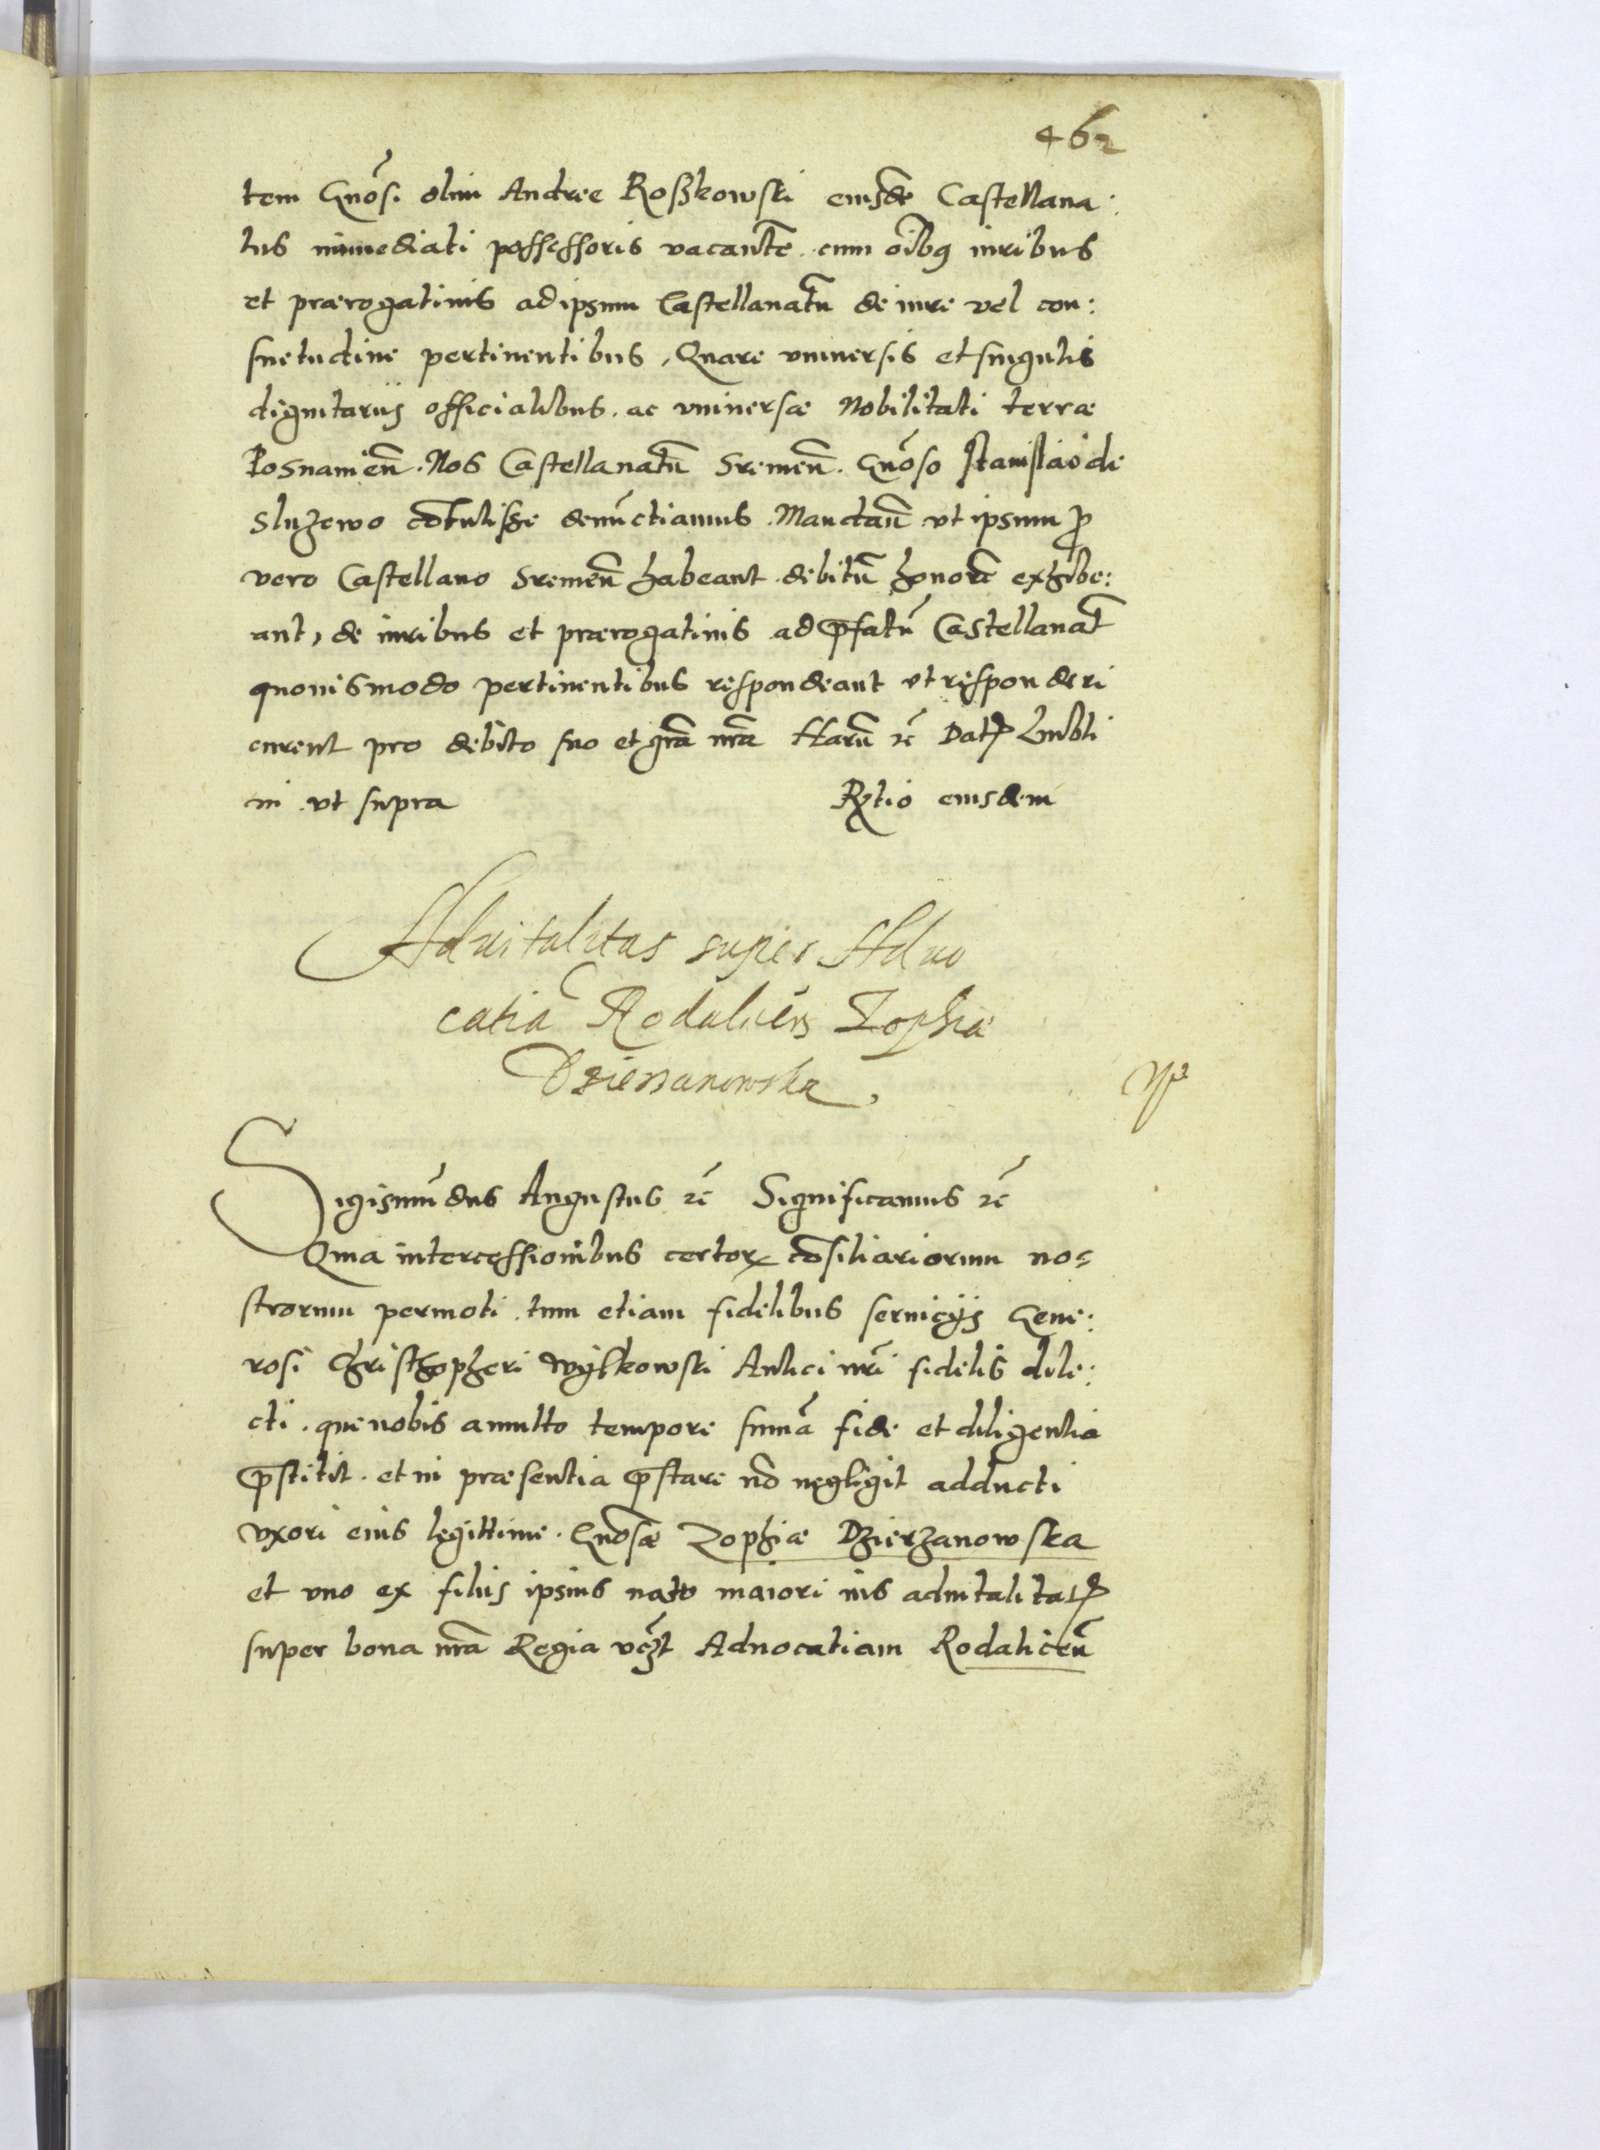 462
tem Gnōsi olim Andree Roszkowski eiusdē Castellana:
tus immediati possessoris vacantē. cum oībq iuribus
et prærogatiuis ad ipsum Castellanatū de iure vel con:
suetudine pertinentibus, Quare vniuersis et singulis
dignitarijs officialibus. ac vniuersæ Nobilitati terræ
Posnameñ. Nos Castellanatū Sremeñ. Gnōso Stanislao de
Sluzewo cōtulisse denūctiamus. Mandañ vt ipsum ꝓ
vero Castellano Sremeñ habeant. debitū honorē exhibe:
ant, de iuribus et prærogatiuis ad p̄fatū Castellanat̄
quouismodo pertinentibus respondeant vt responderi
curent pro debito suo et grā nrā Harū rē Datꝭ Lubli
ni vt supra
Rxtio eiusdem
Aduitalitas super Aduo
catiā Rodalicēn Zophiæ
Dzierzanowska,
Sigismūdus Augustus rē Significamus rē
Quia intercessionibus certoꝝ cōsiliariorum no=
strorum permoti. tum etiam fidelibus seruicijs Gene:
rosi Christhopheri Wylkowski Aulici nrī fidelis dile:
cti. que nobis a multo tempore summā fide et diligentia
p̄stitit. et in præsentia p̄stare nō negligit adducti
vxori eius legittime. Gnōsæ Zophiæ Dzierzanowska
et vno ex filijs ipsius nato maiori ius aduitalitatꝭ
super bona nrā Regia vczt Aduocatiam Rodaliceñ